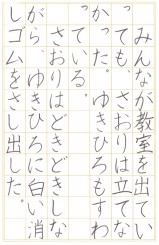 みんなが教室を出てい
っても、さおりは立てな
かった。ゆきひろもすわ
っている。
さおりはどきどきしな
がら、ゆきひろに白い消
しゴムをさし出した。